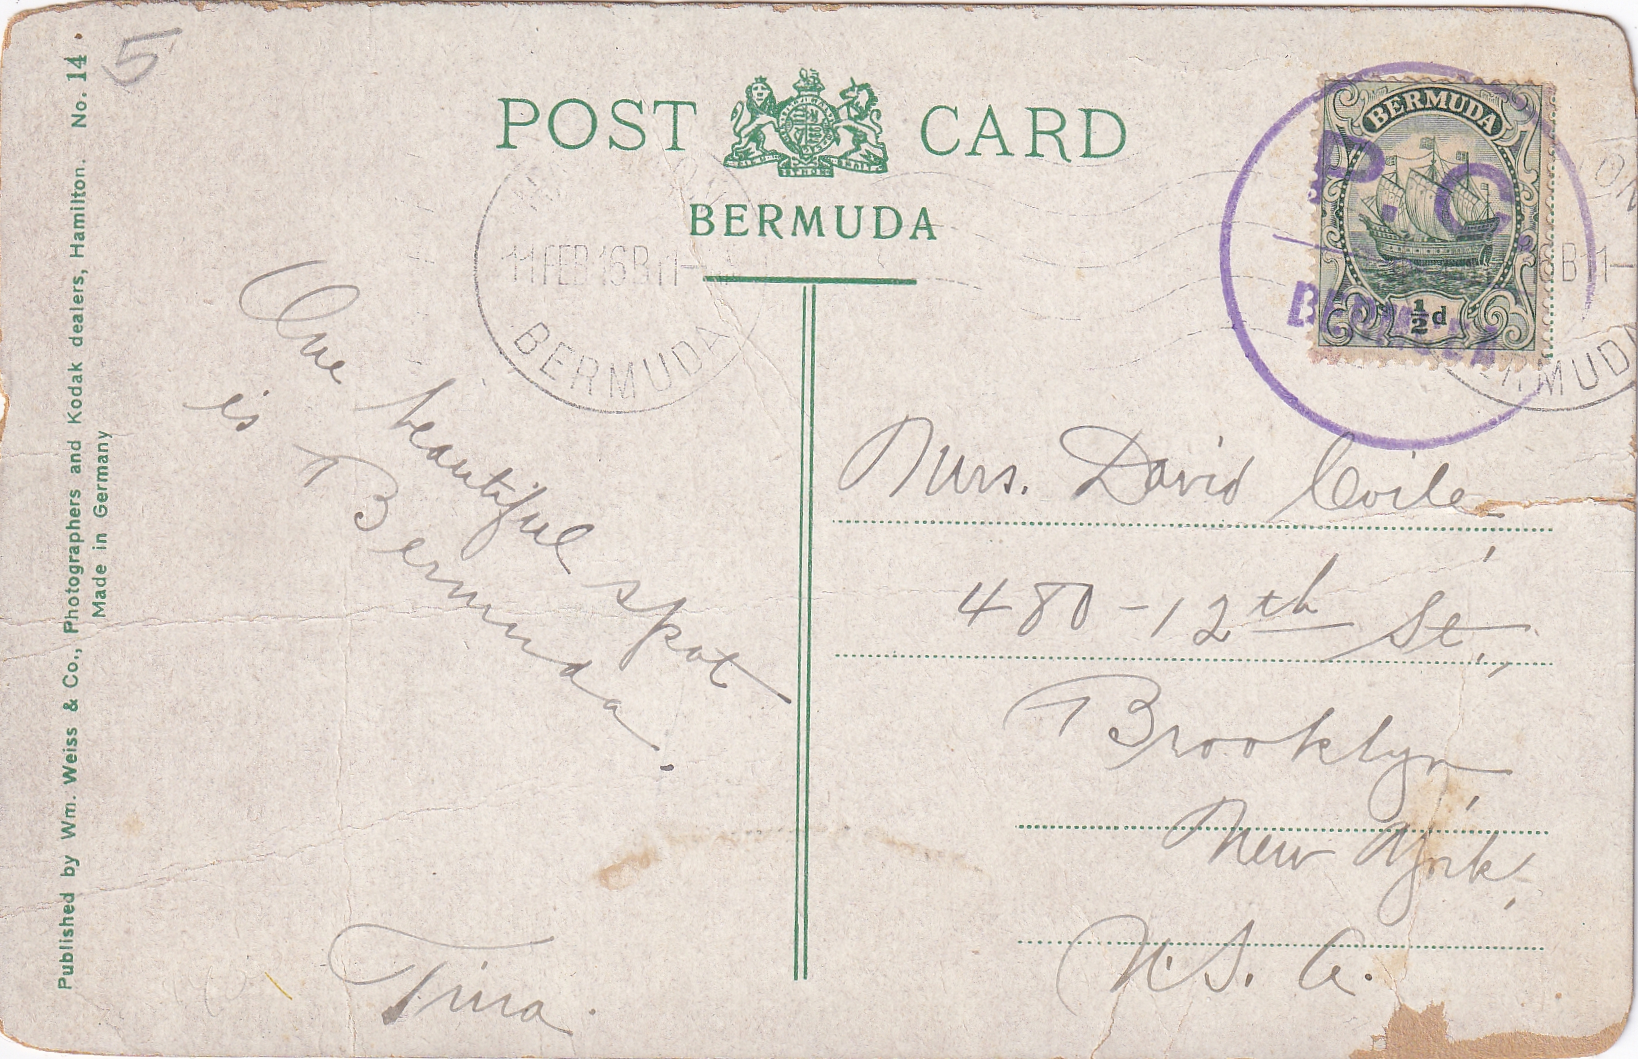 5
POST CARD
BERMUDA
BERMUDA
P.C.
BERMUDA
½d
11 FEB 16 B 11-
BERMUDA
One beautiful spot
is Bermuda.
Tina.
Mrs. David Coile,
480-12th St.,
Brooklyn,
New York,
U.S.A.
Published by Wm. Weiss & Co., Photographers and Kodak dealers, Hamilton. No. 14.
Made in Germany